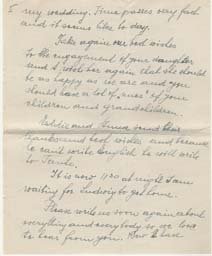 my wedding. Time passes very fast
and it seems like to day.
Take again our best wishes
to the engagement of your daughter
and I wish her again that she should
be as happy as we are and you
should have a lot of "naes" of your
children and grandchildren.
and Anna send their
thanks and best wishes and because
he can't write English he will write
to
It is now 1130 at night I am
waiting for Ludwig to get home.
Please write us soon again about
everything and everybody so we love
to hear from you. Now